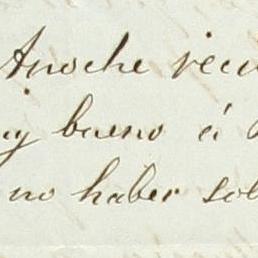 Anoche reci
uy bueno á
no haber sol